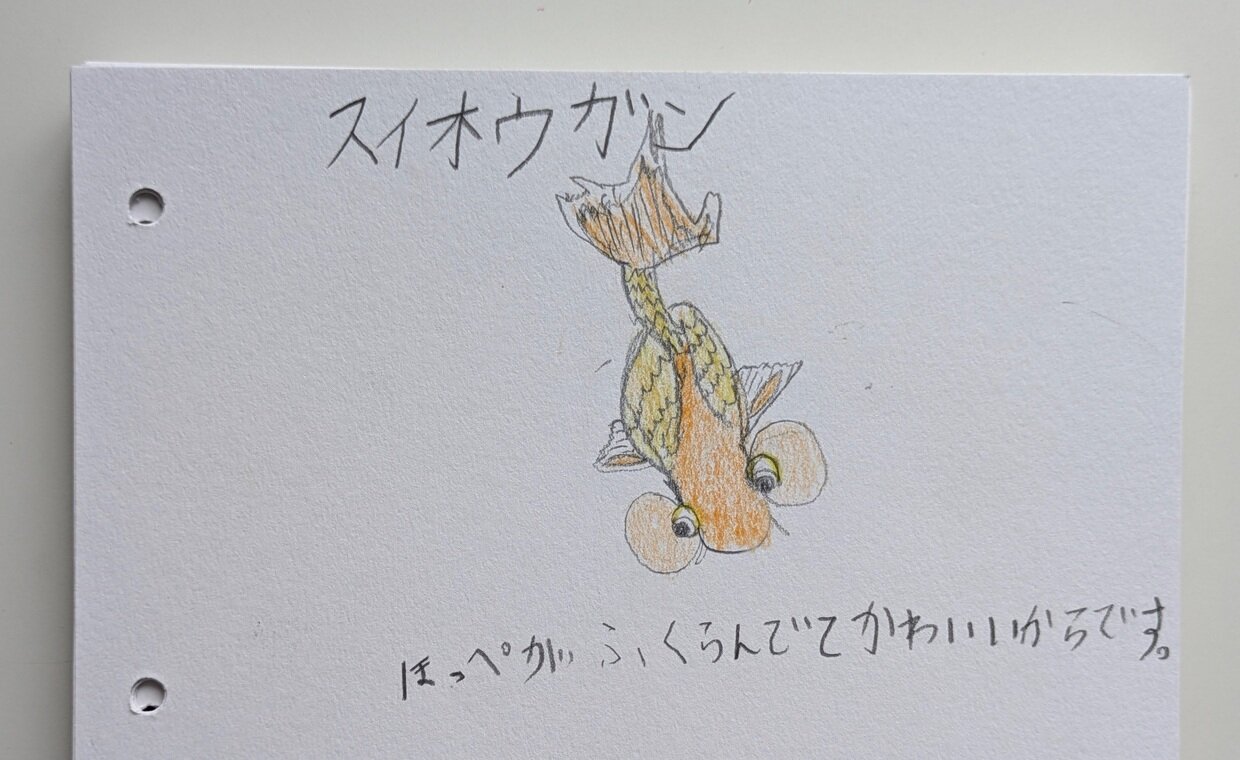 スイホウガン
ほっぺがふくらんでてかわいいからです。